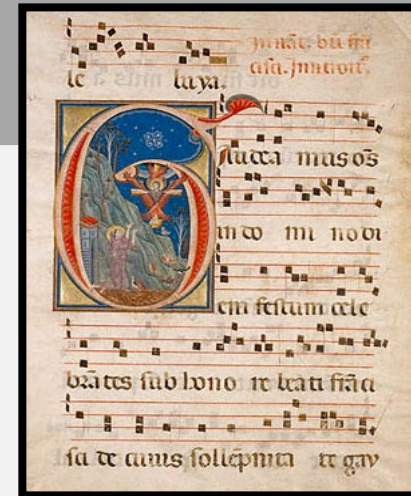 le luya.
Gaudea mus oēs
in do mi no di
em festum cele
brātes sub hono re beati frāci
sci de cuius sollēpnita te gau